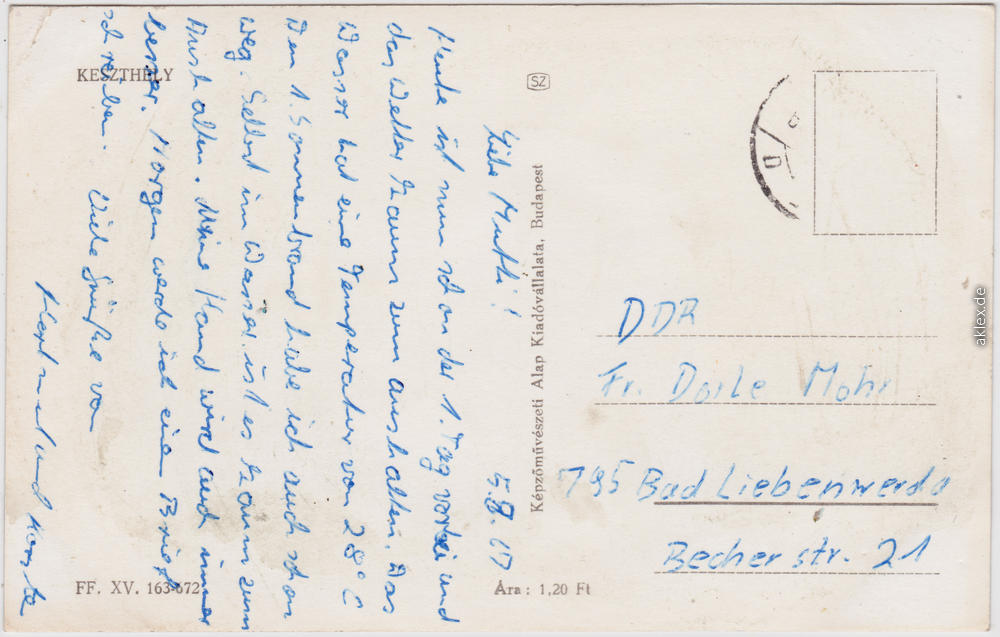 KESZTHELY
SZ
5.8.67
Liebe Mutti!
Heute ist nun schon der 1. Tag vorbei und
das Wetter kaum zum aushalten. Das
Wasser hat eine Temperatur von 28°C
Den 1. Sonnenbrand habe ich auch schon
weg. Selbst im Wasser ist es kaum zum
Aushalten. Meine Hand wird auch immer
besser. Morgen werde ich einen Brief
schreiben. Viele Grüße von
und
Képzőművészeti Alap Kiadóvállalata, Budapest
DDR
Fr. Dorle Mohr
795 Bad Liebenwerda
Becherstr. 21
FF. XV. 163-672
Ára: 1,20 Ft
aklex.de